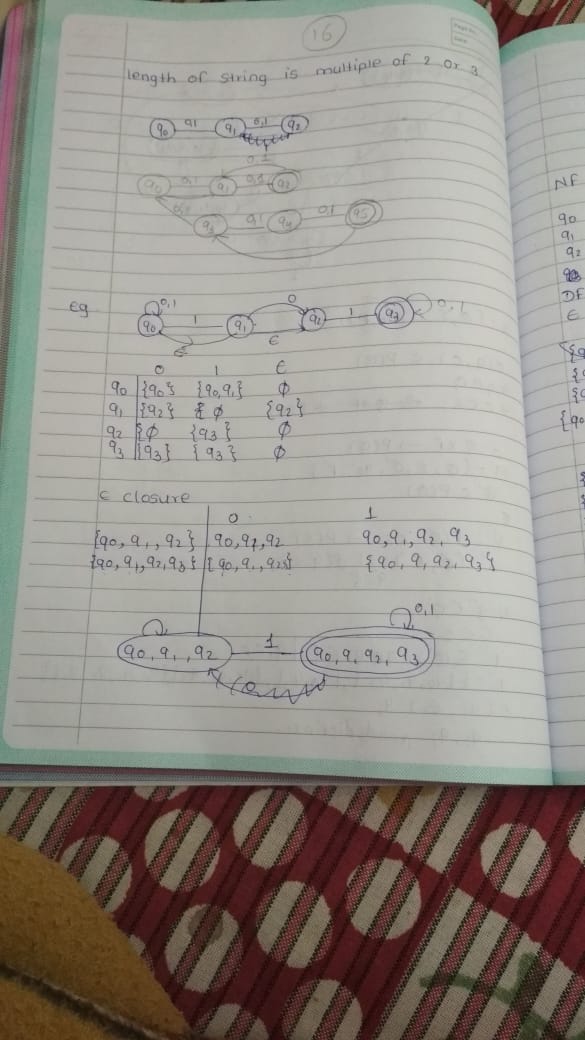 16
length of string is multiple of 2 or 3
q0 q1 0,1 q2
0,1
q0 0,1 q1 0,1 q2
0,1 q3 0,1 q4 0,1 q5
Eg q0 0,1 1 q1 0 q2 1 q3 0,1
ε ε
0 1 ε
q0 {q0} {q0,q1} φ
q1 {q2} φ {q2}
q2 φ {q3} φ
q3 {q3} {q3} φ
ε closure
0 1
{q0, q1, q2} q0, q1, q2 q0, q1, q2, q3
{q0, q1, q2, q3} {q0, q1, q2 } {q0, q1, q2, q3}
0,1
q0, q1, q2 1 q0, q1, q2, q3
NF
q0
q1
q2
DF
ε
{q0